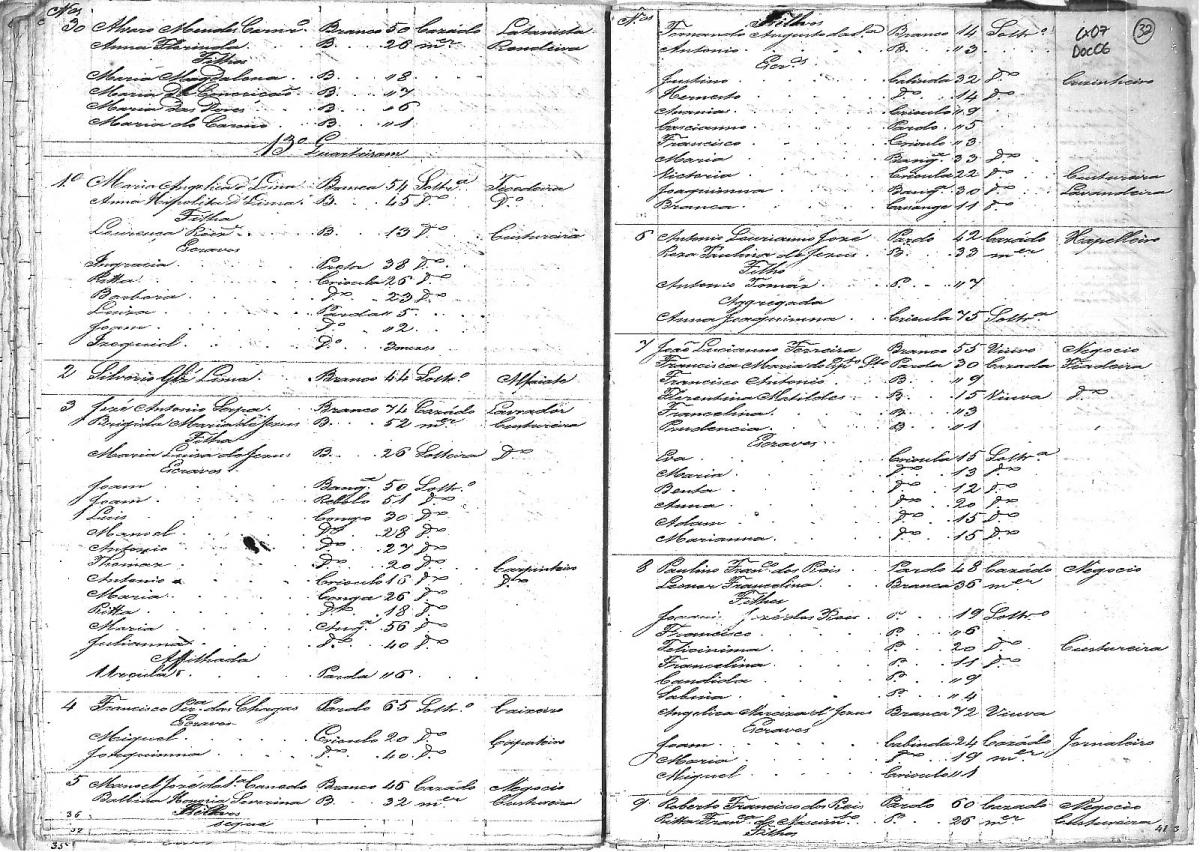 Nos
30 Alvaro Mendes Carnrº Branco 50 Cazádo Latanista
Anna Florinda B. 26 mer Rendeira
Filhas
Maria Magdalena B. " 8
Maria da Conceicaõ B. " 7
Maria das Dores B. " 6
Maria do Carmo B. " 1
13º Quarteiram
1º Maria Angelica d'Lima Branca 54 Soltrª Fiadeira
Anna Hipolita d'Lima B. 45 Dº Dº
Filha
Lourença B. 13 Dº Custureira
Escravos
Ingracia Preta 38 Dº
Ritta Crioula 26 Dº
Barbara Dº 23 Dº
Luiza Parda " 5
Joam Dº " 2
Izequiel Dº 3 mezes
2 Silverio Lima Branco 44 Soltrº Alfaiate
3 Jozé Antonio Branco 74 Cazádo Lavrador
Brigida Maria d'Jesus B. 52 mer Custureira
Filha
Maria Luiza de Jesus B. 26 Solteira Dº
Escravos
Joam Bangª 50 Soltrº
Joam Rebolo 51 Dº
Luis Congo 30 Dº
Manoel Dº 28 Dº
Antonio Dº 27 Dº
Thomaz Dº 20 Dº Carpinteiro
Antonio Crioulo 16 Dº Dº
Maria Conga 26 Dº
Ritta Dº 18 Dº
Maria Angª 56 Dº
Julianna Dº 40 Dº
Affilhada
Urcula Parda " 6
4 Francisco Perª das Chagas Pardo 65 Soltrº Caixeiro
Escravos
Miguel Crioulo 20 Dº Çapateiro
Joaquinna Dº 40 Dº
5 Manoel José da Canedo Branco 46 Cazádo Negocio
Balbina Honoria Severina B. 32 mer Custureira
Filhos
segue
36
37
35
Nos Filhos
Fernando Augusto da Branco 14 Soltrº
Antonio B. " 3
Escos
Justino Cabinda 32 Dº Cuzinheiro
Hernesto Dº 14 Dº
Anania Crioulo " 9
Casciano Pardo " 5
Francisco Crioulo " 3
Maria Bangª 33 Dº
Victoria Crioula 22 Dº Custureira
Joaquinna Bangª 30 Dº Lavandeira
Branca Casange 11 Dº
6 Antonio Laurianno Jozé Pardo 42 Cazádo Xapelleiro
Roza Paulina de Jezus P. 33 mer
Filho
Antonio Tomáz P. " 7
Aggregada
Anna Joaquinna Crioula 75 Soltrª
7 João Lucianno Ferreira Branco 55 Viuvo Negocio
Francisca Maria do Espto Sto Parda 30 Cazada Fiadeira
Francisco Antonio B. " 9
Florentina Matildes B. 15 Viuva Dº
Francelina B. " 3
Prudencia B. " 1
Escravos
Eva Crioula 15 Soltrª
Maria Dº 13 Dº
Benta Dº 12 Dº
Anna Dº 20 Dº
Adam Dº 15 Dº
Marianna Dº 15 Dº
8 Paulino Franco dos Reis Pardo 48 Cazádo Negocio
Leonor Francelina Branca 36 mer
Filhos
Joaqui Jozé dos Reis P. 19 Soltrº
Francisco P. " 6
Felicinima P. 20 Dº Custureira
Francelina P. 11 Dº
Candida P. " 9
Sabina P. " 4
Angelica Marciza d'Jezus Branca 72 Viuva
Escravos
Joam Cabinda 24 Cazádo Jornaleiro
Maria Dº 19 mer
Miguel Crioulo " 1
9 Roberto Francisco dos Reis Pardo 60 Cazado Negocio
Ritta Franca do Nascimto P. 26 mer Custureira
Filhos
CX07
DOC06
32